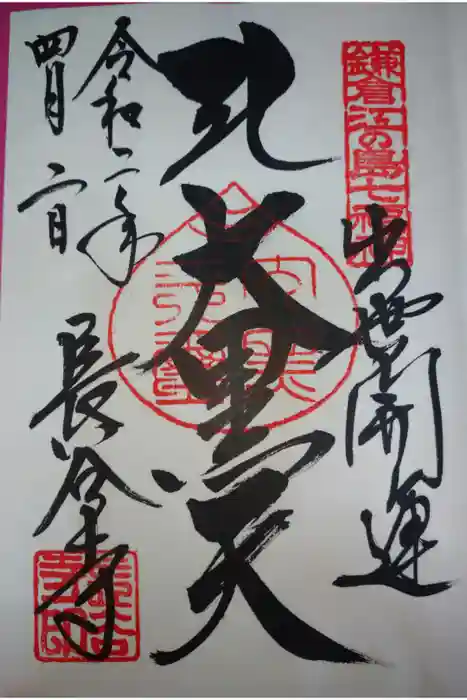 鎌倉江の島七福神
出世開運
礼大黒天
令和二年
四月二日
長谷寺
長谷寺印